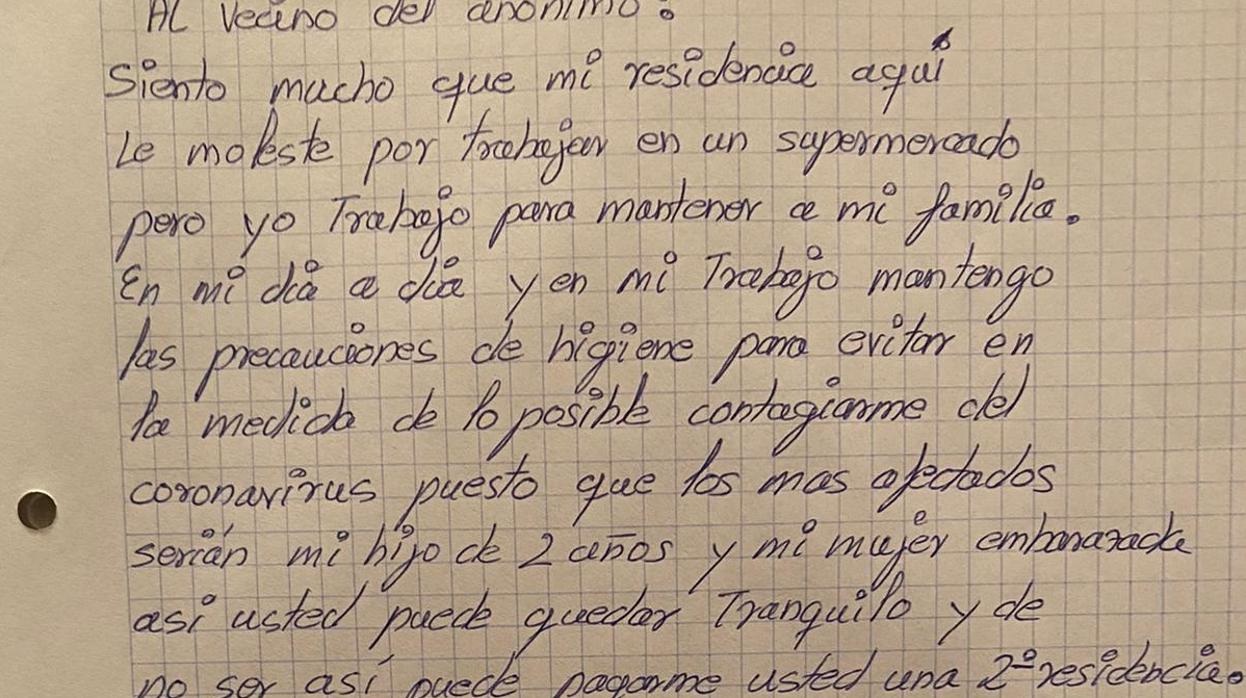 AL vecino del anonimo:
Siento mucho que mi residencia aquí
Le moleste por trabajar en un supermercado
pero yo Trabajo para mantener a mi familia.
En mi día a día y en mi Trabajo mantengo
las precauciones de higiene para evitar en
la medida de lo posible contagiarme del
coronavirus puesto que los mas afectados
serían mi hijo de 2 años y mi mujer embarazada
asi usted puede quedar Tranquilo y de
no ser así puede pagarme usted una 2ª residencia.